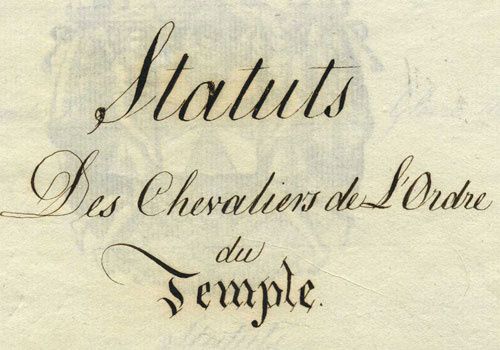 Statuts
Des Chevaliers de L'Ordre
du
Temple.